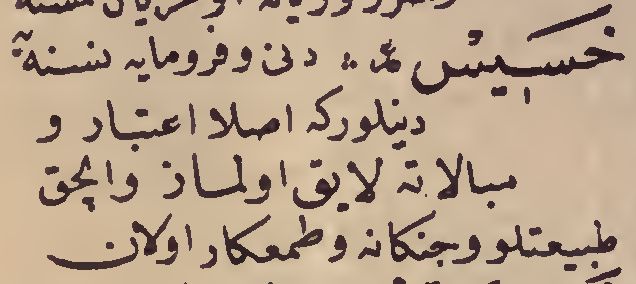 خسيس ع دنى و فرومايه نسنه يه
دينلور كه اصلا اعتبار و
مبالاته لايق اولماز والچق
طبيعتلو و جنكانه و طمعكار اولان